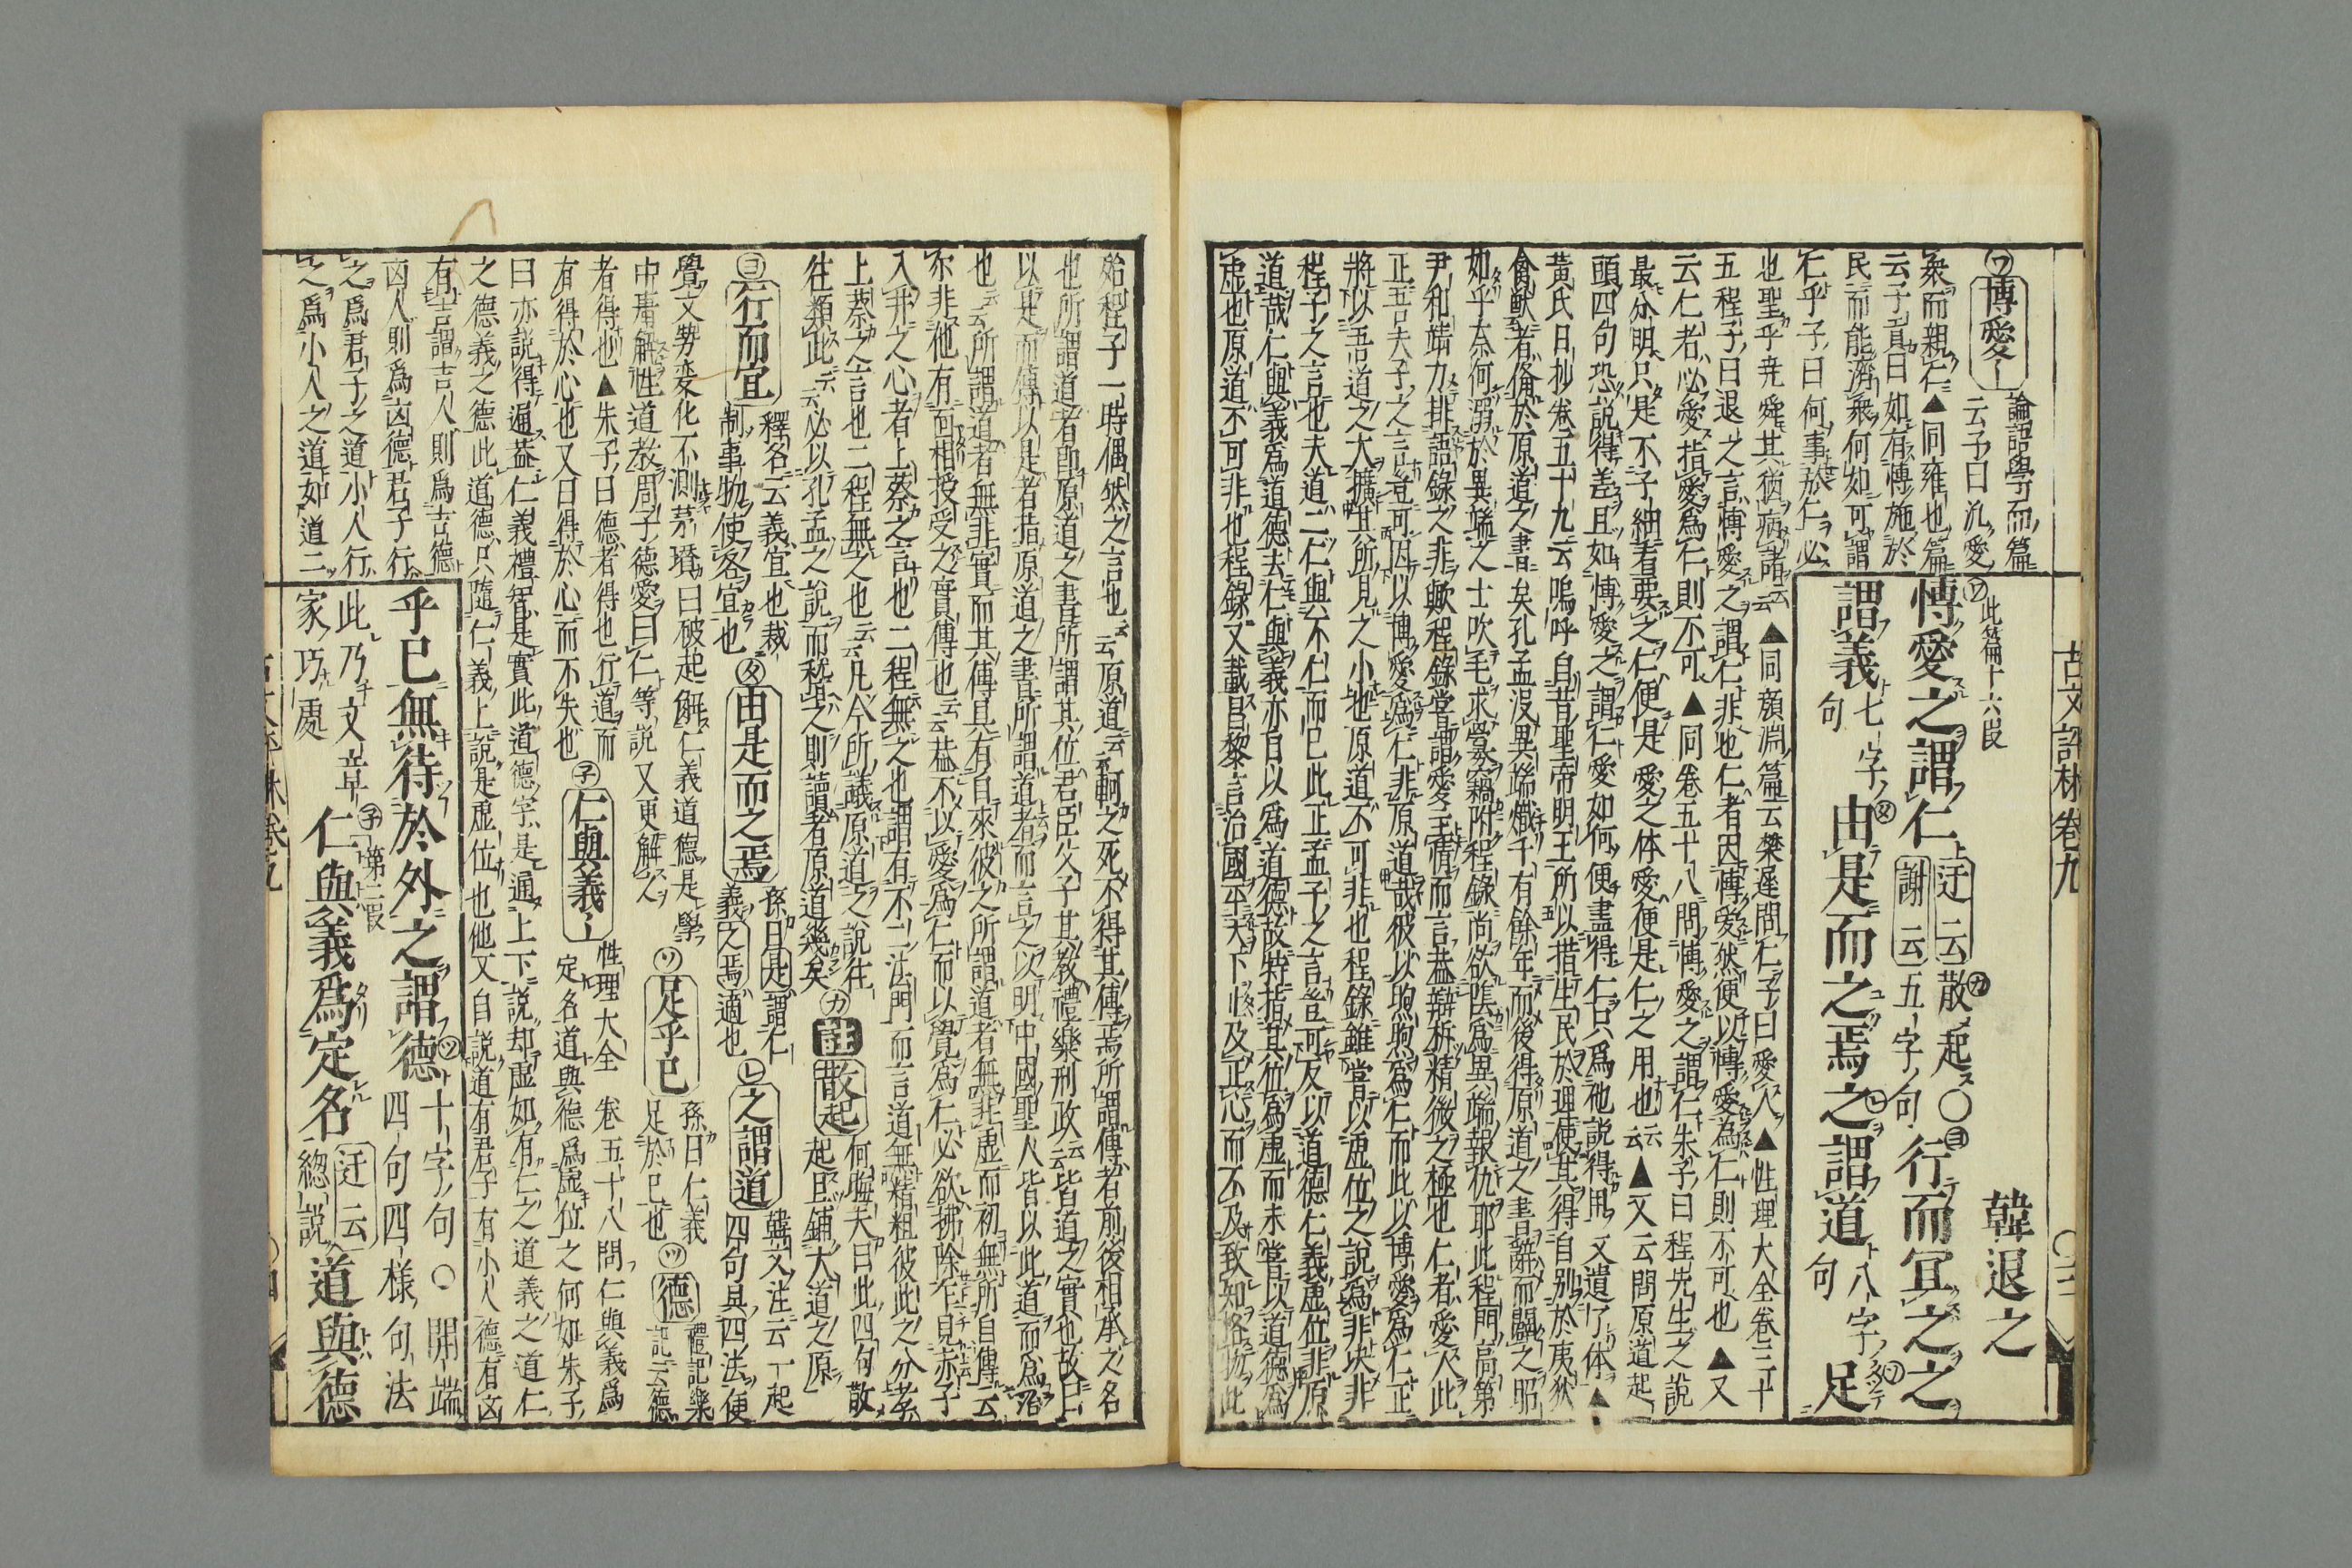 古文評林卷九
韓退之
此篇十六段
博愛之謂仁
迂云散起〇
謝云五字句
行而宜之之
謂義七字句
由是而之焉之謂道八字句
足
博愛
論語學而篇
云子曰汎愛
衆而親仁▲同雍也篇
云子貢曰如有博施於
民而能濟衆何如可謂
仁乎子曰何事於仁必
也聖乎堯舜其猶病諸云▲同顔淵篇云樊遲問仁子曰愛人▲性理大全卷三十
五程子曰退之言博愛之謂仁非也仁者固博愛然便以博愛為仁則不可也▲又
云仁者必愛指愛為仁則不可▲同卷五十八問博愛之謂仁朱子曰程先生之說
最分明只是不子細看要之仁便是愛之体愛便是仁之用也云云▲又云問原道起
頭四句恐說得差且如博愛之謂仁愛如何便盡得仁只為他說得用又遺了体▲
黃氏日抄卷五十九云嗚呼自昔聖帝明王所以措生民於理使其得自別於夷狄
禽獸者備於原道之書矣孔孟沒異端熾千有餘年而後得原道之書辭而闢之昭
如乎奈何溺於異端之士吹毛求
尹和靖力排語錄之非歟程錄嘗謂愛主情而言蓋辯析精微之極也仁者愛人此
正吾夫子之言豈可因以博愛為仁非原道哉彼以煦煦為仁而此以博愛為仁正
將以吾道之大擴其所見之小也原道不可非也程錄雖嘗以虛位之說為非夫非
程子之言也夫道二仁與不仁而已此正孟子之言豈可反以道德仁義虛位非原
道哉仁與義為道德去仁與義亦自以為道德故特指其位為虛而未嘗以道德為
虛也原道不可非也程錄又載昌黎言治國平天下止及正心而不及致知格物此
始程子一時偶然之言也云原道云軻之死不得其傳焉所謂傳者前後相承之名
也所謂道者即原道之書所謂其位君臣父子其教禮樂刑政云皆道之實也故曰
以是而傳以是者指原道之書所謂道者而言之以明中國聖人皆以此道而為
也云所謂道者無非實而其傳具有自來彼之所謂道者無非虛而初無所自傳云
尒非他有面相授受之實傳也云蓋不以愛為仁而以覺為仁必欲掃除乍見赤子
入井之心者上蔡之言也二程無之也謂有不二法門而言道無精粗彼此之分者
上蔡之言也二程無之也云凡今所議原道之說往
往類此云必以孔孟之說而稽之則讀者原道幾矣
註
散起
何晦夫曰此四句散
起且鋪大道之原
行而宜
釋名云義宜也裁
制事物使各宜也
由是而之焉
孫曰是謂仁
義之焉適也
之謂道
韓文注云一起
四句具四法便
覺文勢変化不測茅瓚曰破起解仁義道德是學
中庸解性道教周子德愛曰仁等說又更解之
足乎已
孫曰仁義
足於已也
德
禮記樂
記云德
者得也▲朱子曰德者得也行道而
有得於心也又曰得於心而不失也
仁與義
性理大全卷五十八問仁與義為
定名道與德為虛位之何如朱子
曰亦說得通蓋仁義禮智是實此道德字是通上下說却虛如有仁之道義之道仁
之德義之德此道德只隨仁義上說是虛位也他又自說道有君子有小人德有凶
有吉謂吉人則為吉德
凶人則為凶德君子行
之為君子之道小人行
之為小人之道如道二
乎已無待於外之謂德十字句〇開端
四句四様句法
此乃文章
家巧處
第二段
仁與義為定名
迂云
總說
道與德